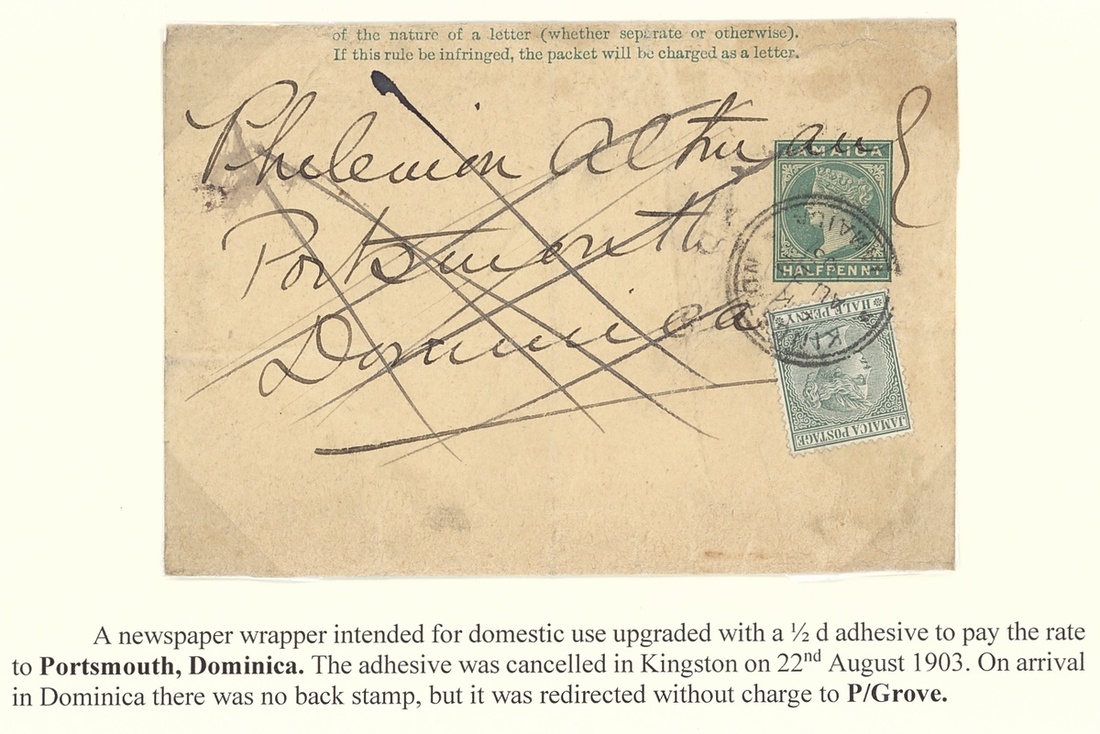 of the nature of a letter (whether separate or otherwise).
If this rule be infringed, the packet will be charged as a letter.
JAMAICA
Portsmouth
HALFPENNY
Dominica
HALF PENNY
JAMAICA POSTAGE
A newspaper wrapper intended for domestic use upgraded with a ½ d adhesive to pay the rate
to Portsmouth, Dominica. The adhesive was cancelled in Kingston on 22nd August 1903. On arrival
in Dominica there was no back stamp, but it was redirected without charge to P/Grove.